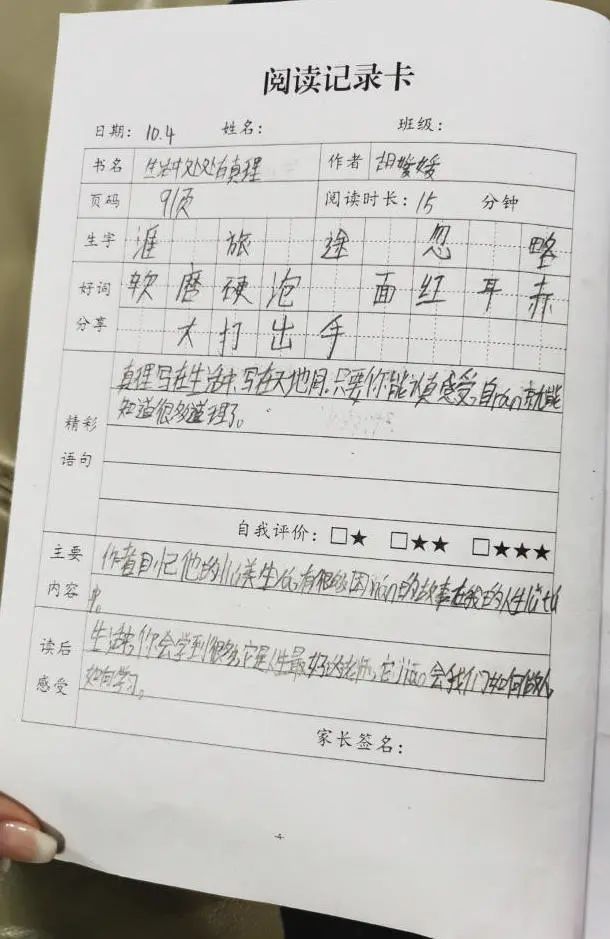 阅读记录卡
日期: 10.4 姓名: 班级:
书名 生活中处处有真理 作者 胡媛媛
页码 91页 阅读时长: 15 分钟
生字 涯 旅 途 忽 略
好词 软磨硬泡 面红耳赤
分享 大打出手
真理写在生活中,写在天地间,只要你能认真感受,自ran就能
知道很多道理了。
精彩
语句
自我评价: □★ □★★ □★★★
主要 作者 的 生活,有很多 的故事在我的人生
内容 中。
读后 生活中你会学到很多,它是人生最好的老师,它jiao会我们如何做人
感受 如何学习。
家长签名:
-4-